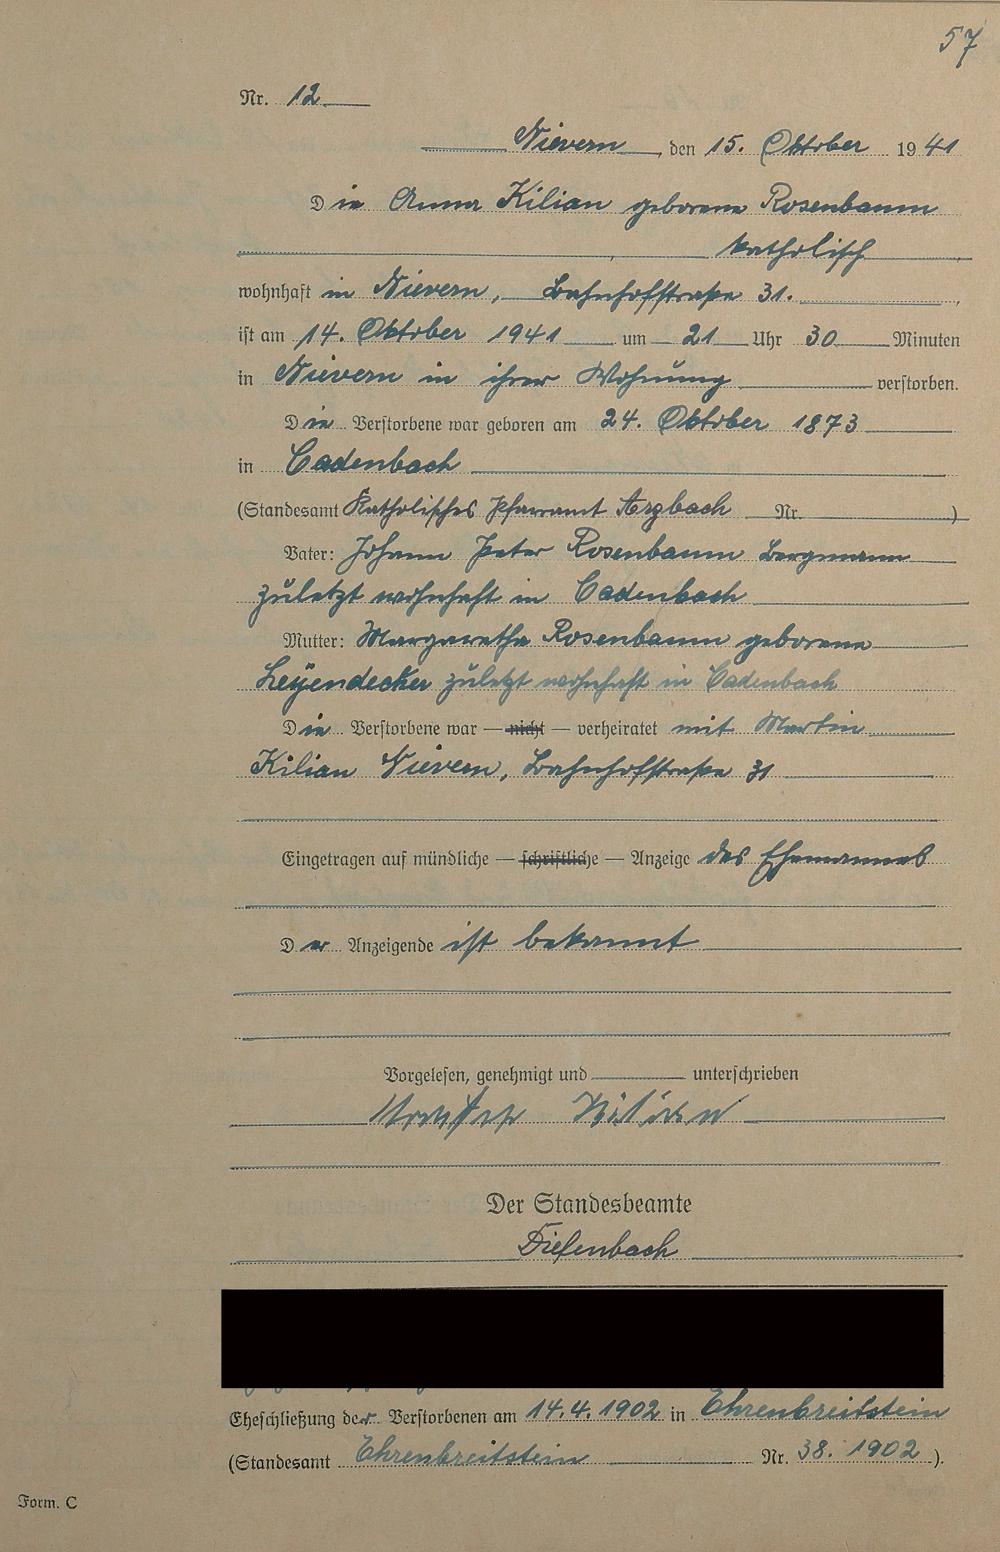 57
Nr. 12
Nievern, den 15. Oktober 1941
Die Anna Kilian geborene Rosenbaum
katholisch
wohnhaft in Nievern, Bahnhofstraße 31.
ist am 14. Oktober 1941 um 21 Uhr 30 Minuten
in Nievern in ihrer Wohnung verstorben.
Die Verstorbene war geboren am 24. Oktober 1873
in Cadenbach
(Standesamt Katholisches Pfarramt Arzbach Nr. )
Vater: Johann Peter Rosenbaum Bergmann
zuletzt wohnhaft in Cadenbach
Mutter: Margaretha Rosenbaum geborene
Leyendecker zuletzt wohnhaft in Cadenbach
Die Verstorbene war — nicht — verheiratet mit Martin
Kilian Nievern, Bahnhofstraße 31
Eingetragen auf mündliche — schriftliche — Anzeige des Ehemannes
Der Anzeigende ist bekannt
Vorgelesen, genehmigt und unterschrieben
Martin Kilian
Der Standesbeamte
Diefenbach
Eheschließung der Verstorbenen am 14.4.1902 in Ehrenbreitstein
(Standesamt Ehrenbreitstein Nr. 38. 1902 ).
Form. C